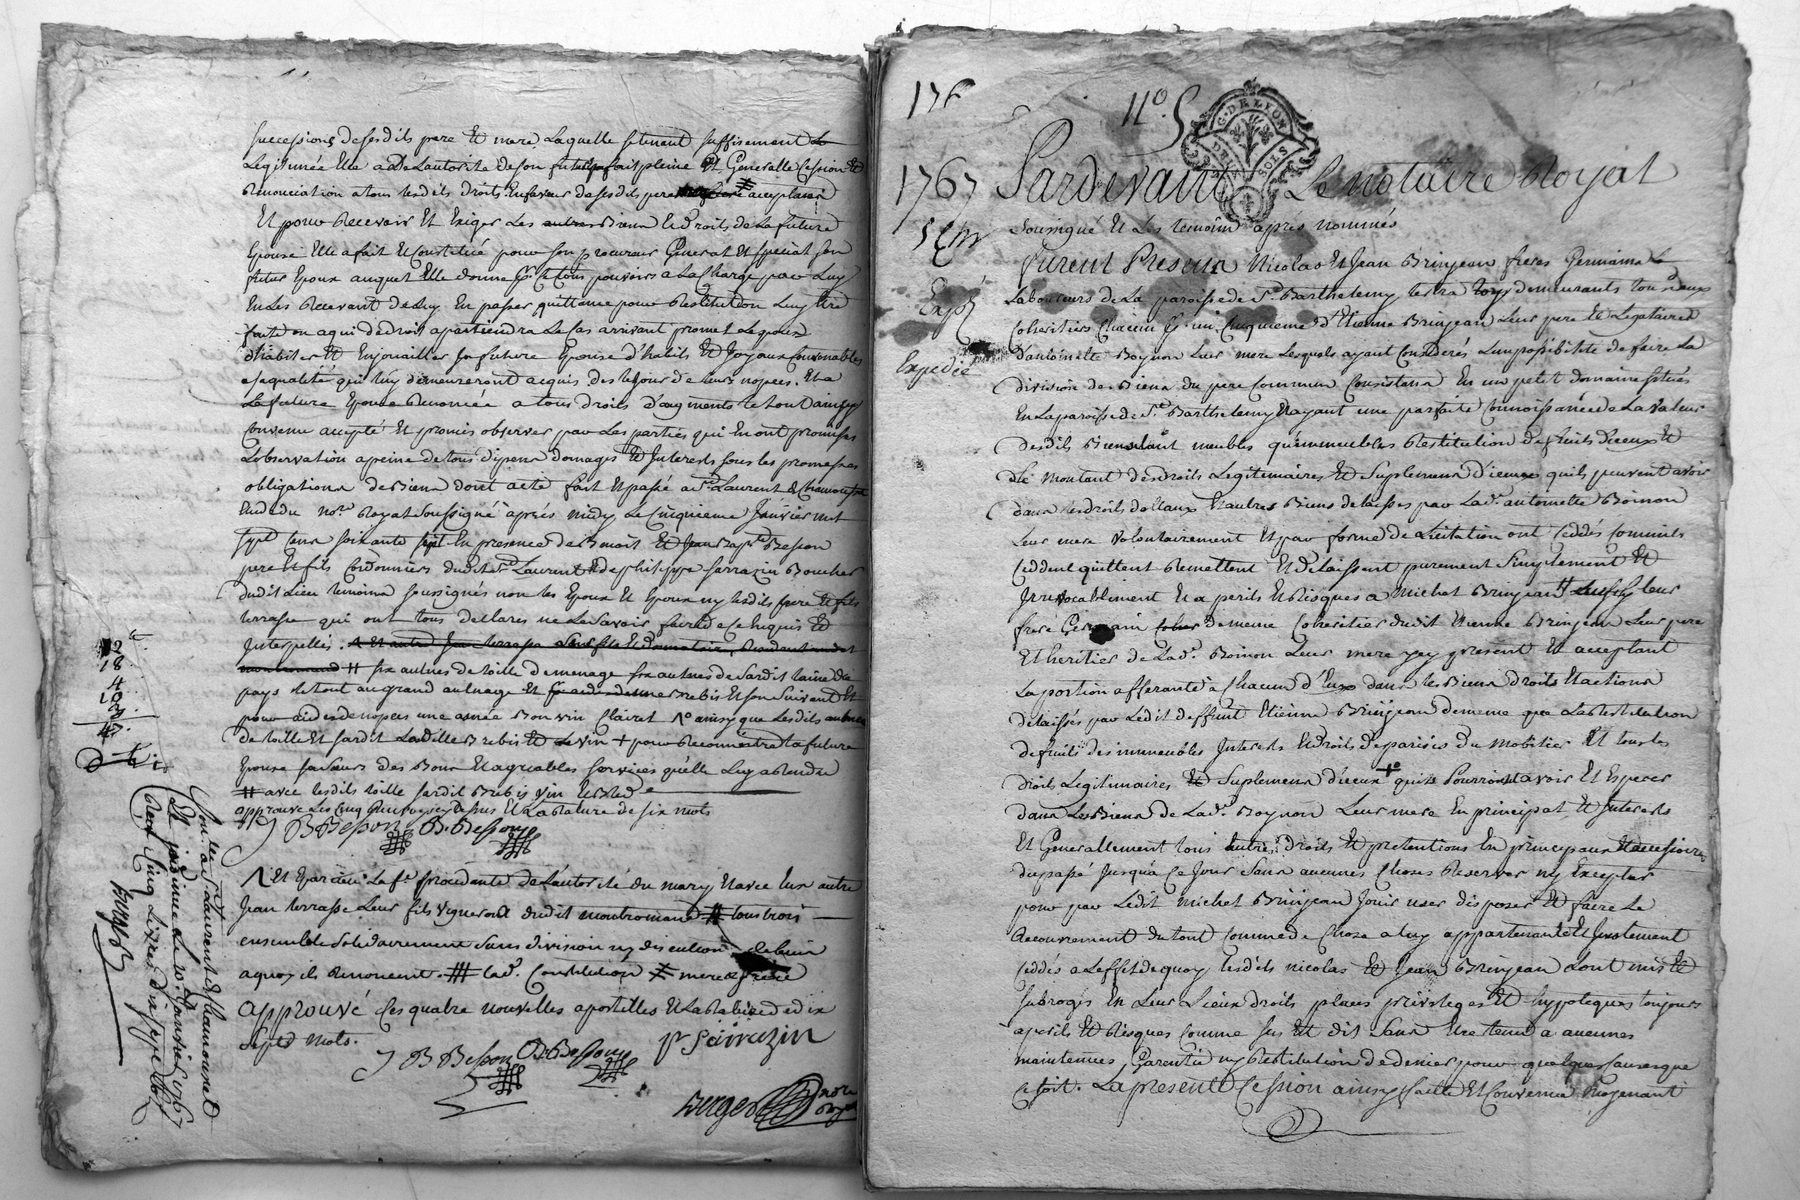 successions de sesdits pere et mere Laquelle se tenant suffisement
Legitimée Elle a de L'autorité de son futur fait pleine et Generalle Cession et
Renonciation a tous lesdits droits En faveur de sesdits pere acceptant
Et pour Recevoir Et Exiger Les autres Biens et droits de La future
Epouse Elle a fait et Constitué pour son procureur General et special son
futur Epoux auquel Elle donne tous pouvoirs a La charge par Luy
En Les Recevant de Luy En passer quittance pour Restitution Luy Etre
faitte ou a qui de droit apartiendra Le Cas arrivant promet Lepoux
d'habiller Et Enjoualler sa future Epouse d'habits Et Joyaux Convenables
a sa qualité qui luy demeureront acquis des le jour de leurs nopces. Et a
La future Epouse Renoncée a tous droits d'augments le tout ainsy
Convenu accepté Et promis observer par Les parties qui En ont promises
L'observation a peine de tous dépens domages et Interests sous les promesses
obligations de Biens dont acte fait Et passé a St Laurent de Chamousset
Etude du nore Royal soussigné après midy Le Cinquieme Janvier mil
sept Cens soixante sept En presence de Benoit Et Jean Bapte Besson
pere Et fils Cordonniers dudit St Laurent Et de Philippe Sarrazin Boucher
dudit Lieu temoins soussignés non les Epoux Et Epouse ny lesdits pere Et fils
terrasse qui ont tous declarés ne Le savoir faire de ce Enquis Et
Interpellés.
six aulnes de toille de menage six aulnes de sardit laine du
pays le tout au grand aulnage Et Brebis Et son Suivant Et
pour aides de nopces une asnée Bon vin Clairet ainsy que Lesdits aulnes
de toille Et sardit Laditte Brebis Et Le vin + pour Reconnoitre La future
Epouse sa sœur des Bons Et agreables services qu'elle Luy a Rendu
avec lesdits toille sardit Brebis vin
approuvé Les Cinq Renvoys cy dessus Et La Rature de six mots
J B Besson B. Besson
Et Epardieu La fe procedante de L'autorité du mary Et avec Eux autre
Jean terrasse Leur fils vigneron dudit montromand tous trois
ensemble Solidairement sans division ny discution
a quoy ils Renoncent. lad. Constitution mere
approuvé Ces quatre nouvelles apostilles Et La Rature de dix
Sept mots.
J B Besson B. Besson P Sarrazin
berger nore Royal
12
18
4
10
3
47
Con. le a St Laurent de Chamousset
Le janvier 1767
Reçu Cinq Livres
berger
176
no 5
G. DE LYON
DEUX SOLS
1767
5 Janr
Expé
Expedié
Pardevant Le notaire Royal
Soussigné Et Les temoins après nommés
furent Presens Nicolas Et Jean Brinjean freres Germains
Laboureurs de La paroisse de St Barthelemy Lestra y demeurants tous deux
Coheritiers Chacun Pr un Cinquieme d'Etienne Brinjean Leur pere Et Legataires
d'antoinette Boynon Leur mere Lesquels ayant Considerés L'impossibilité de faire La
division des Biens du pere Commun Consistans En un petit domaine situés
En La paroisse de St Barthelemy Et ayant une parfaite Connoissance de La valeur
desdits Biens tant meubles qu'immeubles Restitution de fruits d'iceux Et
Le montant des droits Legitimaires Et Suplement d'iceux qu'ils peuvent avoir
dans les droits dottaux Et autres Biens delaissés par Lad. antoinette Boinon
Leur mere volontairement Et par forme de Licitation ont Ceddés comme ils
Ceddent quittent Remettent Et delaissent purement Simplement Et
Irrevocablement Et a perils Et Risques a Michel Brinjean Leur
frere Germain de meme Coheritier dudit Etienne Brinjean Leur pere
Et heritier de Lad. Boinon Leur mere icy present Et acceptant
La portion afferante a Chacun d'Eux dans les Biens droits Et actions
delaissés par Ledit deffunt Etienne Brinjean de meme que La Restitution
de fruits des immeubles Interests Et droits d'eparisés du Mobilier Et tous les
droits Legitimaires Et Suplement d'iceux qu'ils Pourroient avoir Et Esperer
dans Les Biens de Lad. Boynon Leur mere En principal Et Interests
Et Generallement tous autres droits Et pretentions En principaux Et accessoires
du passé Jusqu'a Ce Jour Sans aucunes Choses Reserver ny Excepter
pour par Ledit Michel Brinjean Jouir user disposer Et faire Le
Recouvrement du tout Comme de Chose a luy appartenante Et Justement
Ceddés a L'effet de quoy lesdits nicolas Et Jean Brinjean L'ont mis Et
subrogés En Leur Lieux droits places privileges Et hypoteques toujours
a perils Et Risques comme sus Est dit Sans Etre tenu a aucunes
maintenues, Garentie ny Restitution de deniers pour quelque Cause que
Ce soit. La presente Cession ainsy faitte Et Convenue Moyenant